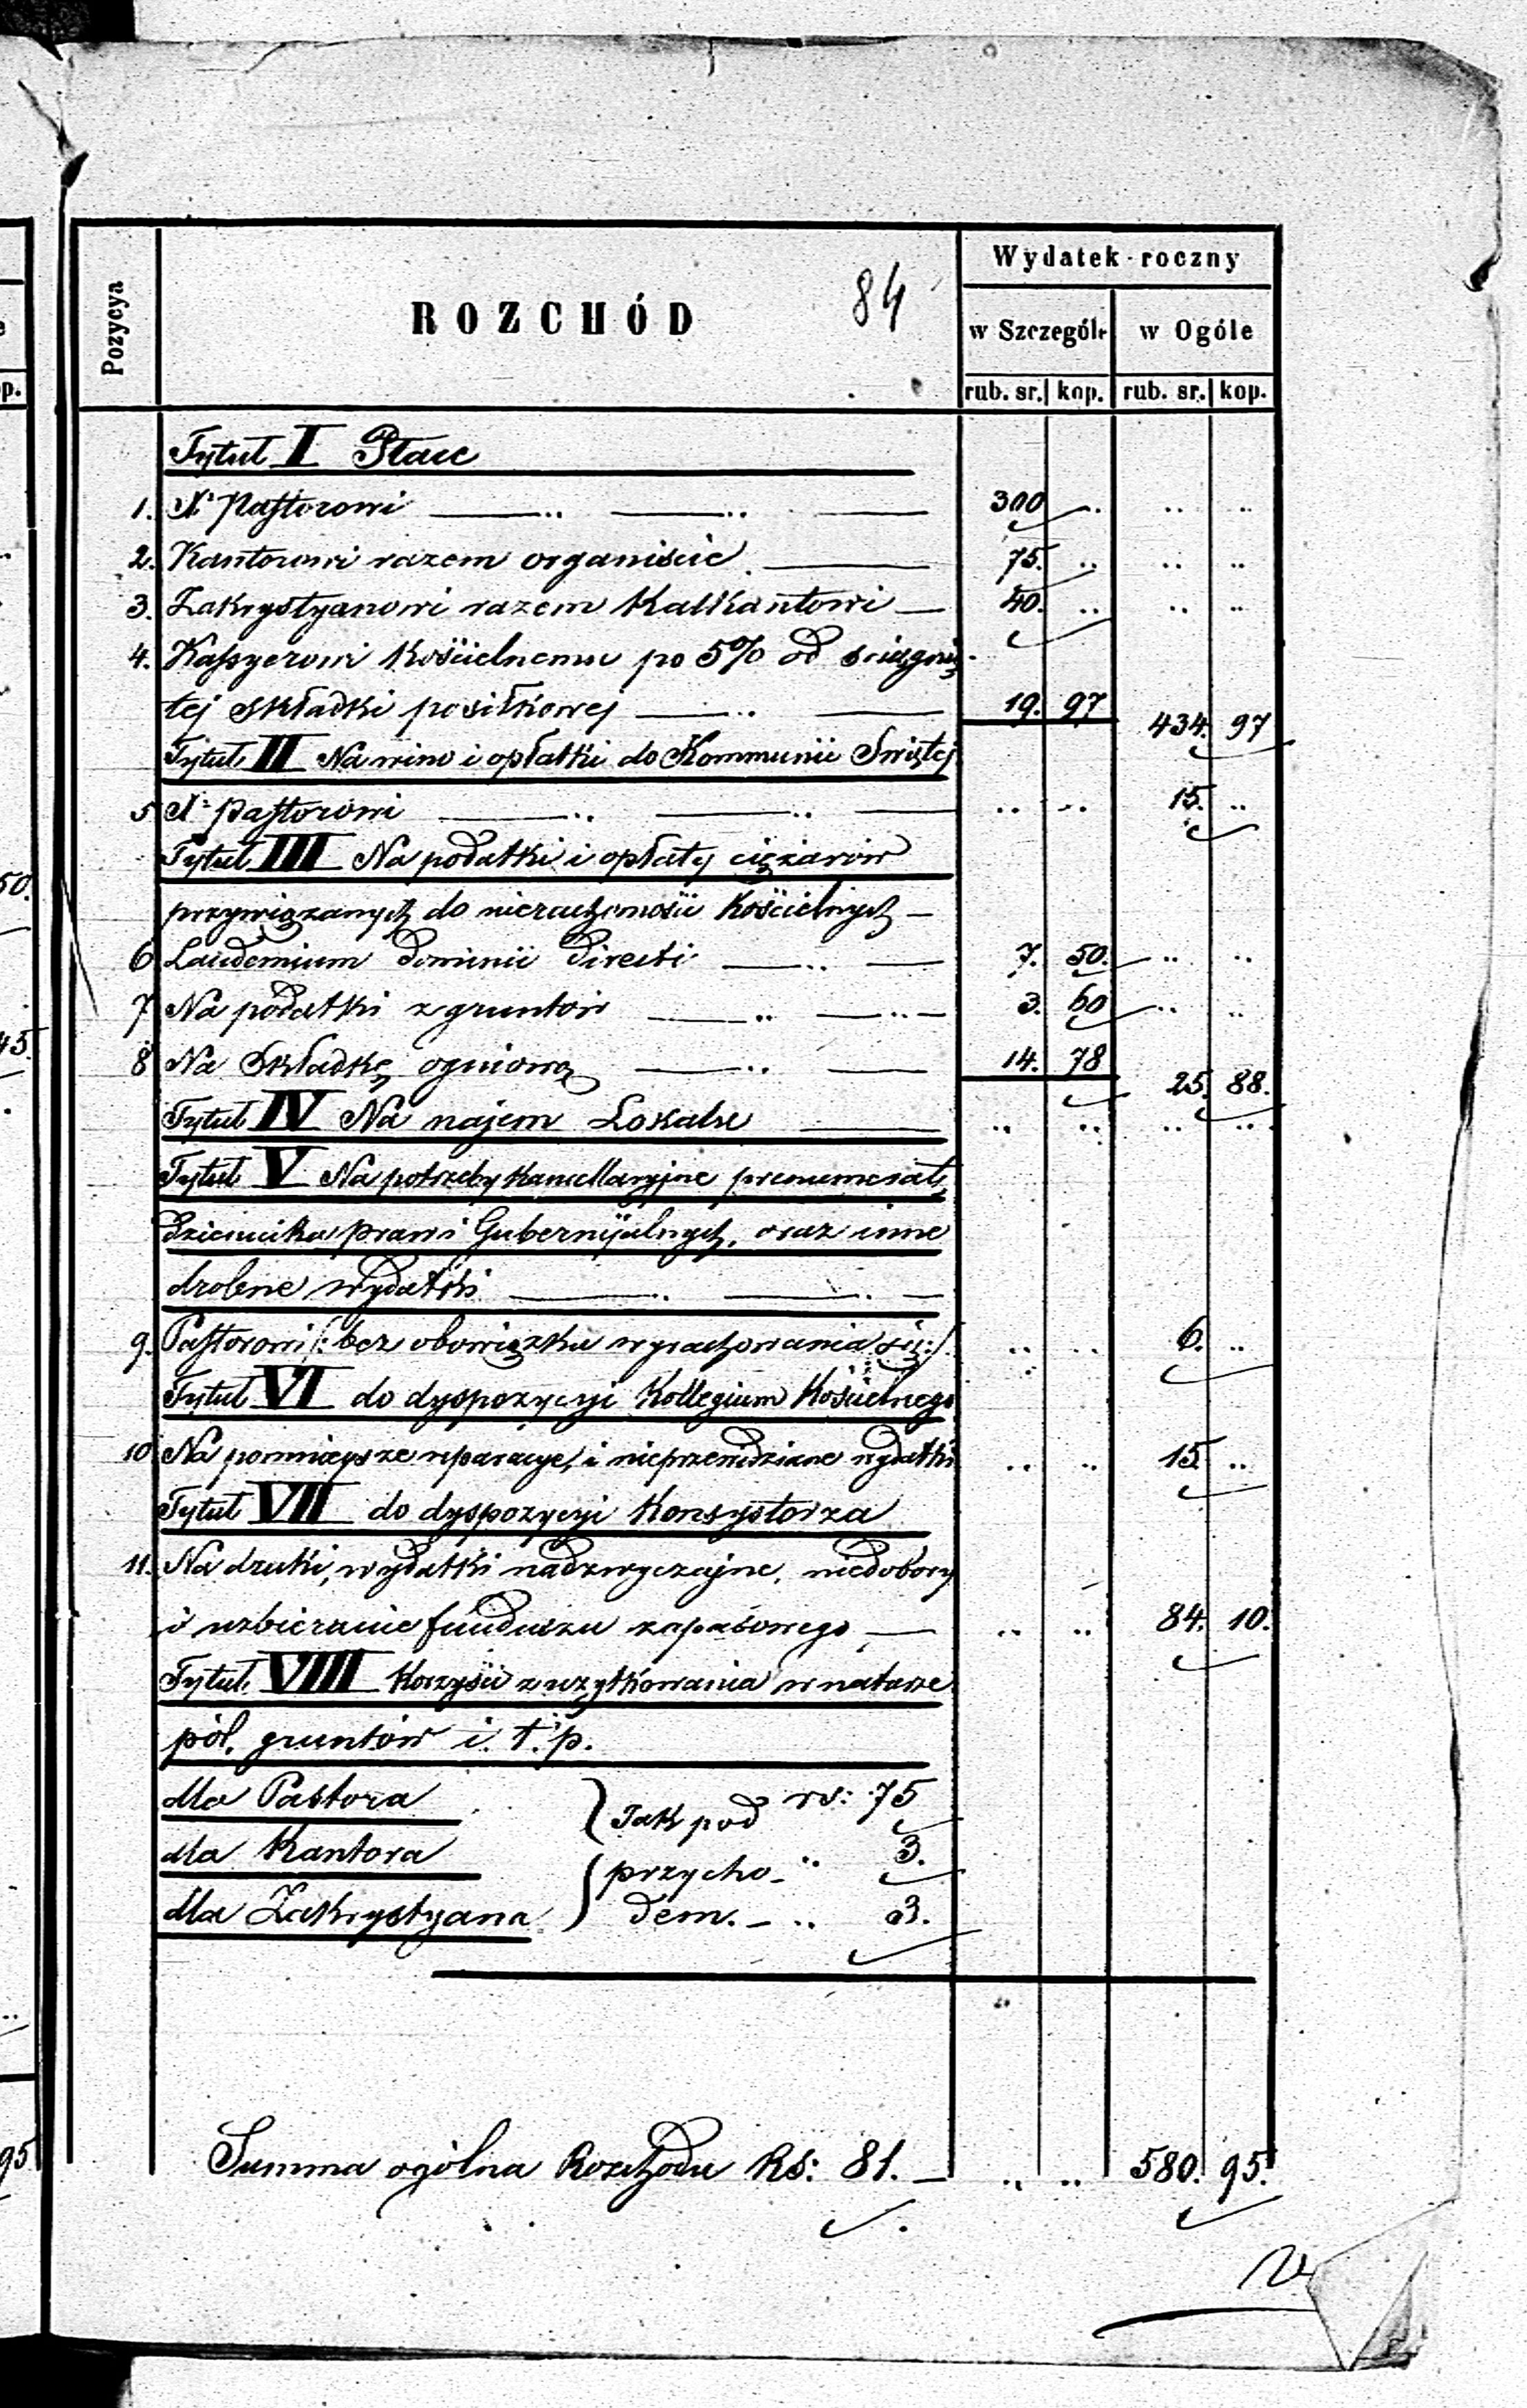 Wydatek roczny
Pozycya
ROZCHÓD
84
w Szczególe
w Ogóle
rub. sr. kop. rub. sr. kop.
Tytuł I Płace
1. X. Pastorowi 300 .. .. ..
2. Kantorowi razem organiście 75. .. .. ..
3. Zakrystyanowi razem Kalkantowi 40. .. .. ..
4. Kassyerowi Kościelnemu po 5% od ściągnię-
tej składki posiłkowej 19. 97 434. 97
Tytuł II Na wino i opłatki do Kommunii Świętej
5 X. Pastorowi .. .. 15. ..
Tytuł III Na podatki i opłaty ciężarów
przywiązanych do nieruchomości Kościelnych
6 Laudemium Dominii Directi 7. 50. .. ..
7 Na podatki z gruntów 3. 60 .. ..
8 Na Składkę ogniową 14. 78 25. 88.
Tytuł IV Na najem Lokalu .. .. .. ..
Tytuł V Na potrzeby kancellaryjne prenumeratę
Dziennika praw i Gubernijalnych, oraz inne
drobne wydatki
9. Pastorowi /: bez obowiązku wyrachowania się :/ .. .. 6. ..
Tytuł VI do dyspozycyi Kollegium Kościelnego
10 Na pomniejsze reparacye, i nieprzewidziane wydatki .. .. 15. ..
Tytuł VII do dyspozycyi Konsystorza
11. Na druki, wydatki nadzwyczajne, niedobory
i uzbieranie funduszu zapasowego .. .. 84. 10.
Tytuł VIII Korzyści z użytkowania w naturze
pól, gruntów i. t. p.
dla Pastora } Tak pod rs: 75
dla Kantora przycho- .. 3.
dla Zakrystyana dem. - .. 3.
Summa ogólna Rozchodu Rs: 81. - .. .. 580. 95.